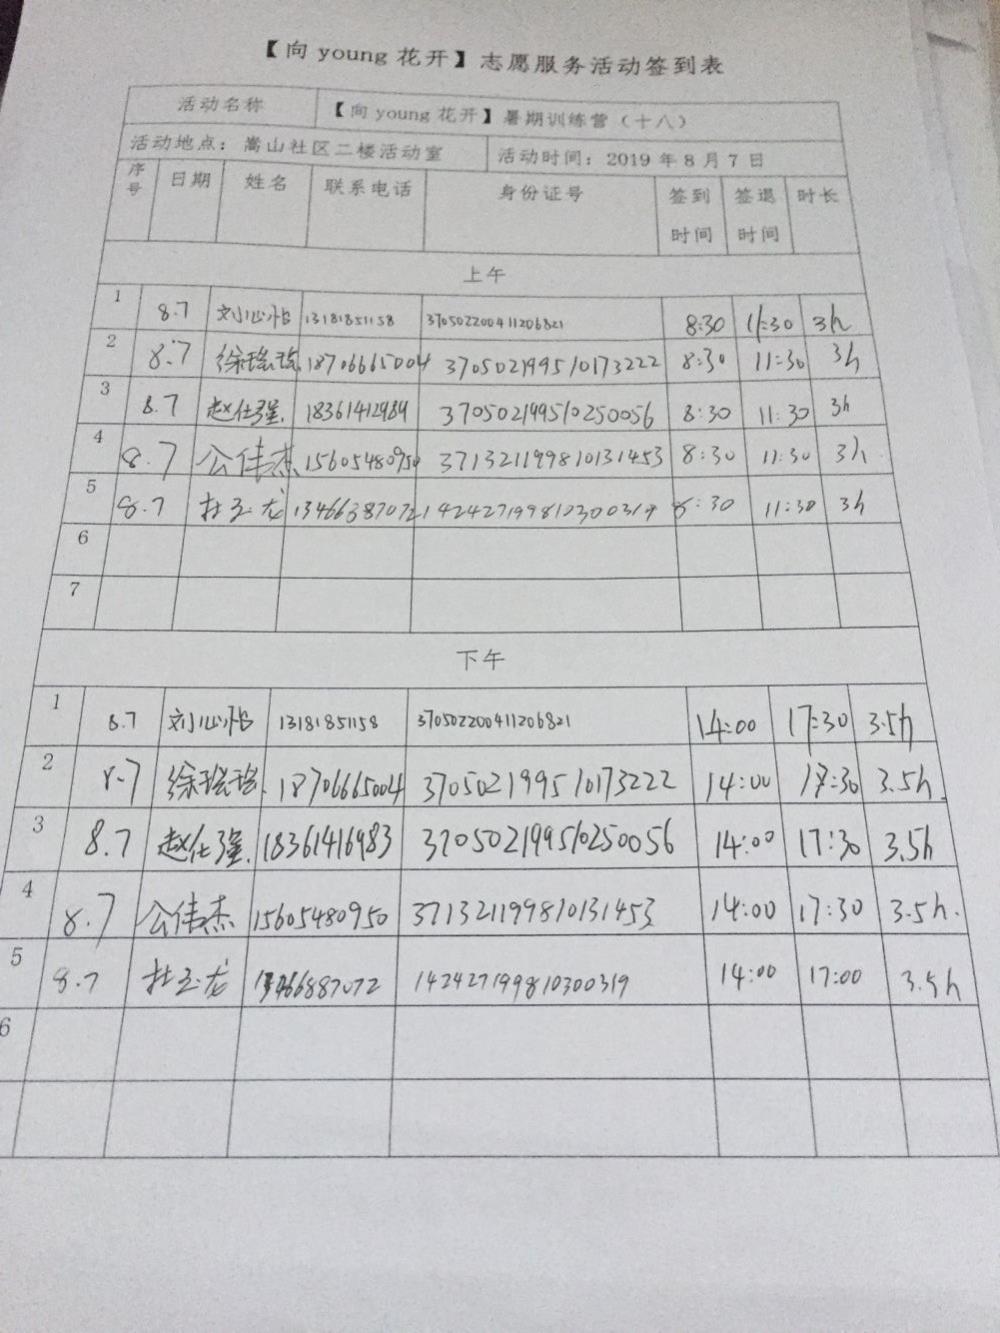 【向young花开】志愿服务活动签到表
活动名称 【向young花开】暑期训练营（十八）
活动地点：嵩山社区二楼活动室 活动时间：2019年8月7日
序号 日期 姓名 联系电话 身份证号 签到时间 签退时间 时长
上午
1 8.7 刘心怡 13181851158 370502200411206821 8:30 11:30 3h
2 8.7 徐瑶瑶 18706665004 370502199510173222 8:30 11:30 3h
3 8.7 赵仕强 370502199510250056 8:30 11:30 3h
4 8.7 公伟杰 15605480950 371321199810131453 8:30 11:30 3h
5 8.7 杜玉龙 142427199810300319 8:30 11:30 3h
6
7
下午
1 8.7 刘心怡 13181851158 370502200411206821 14:00 17:30 3.5h
2 8.7 徐瑶瑶 18706665004 370502199510173222 14:00 17:30 3.5h
3 8.7 赵仕强 18361416983 370502199510250056 14:00 17:30 3.5h
4 8.7 公伟杰 15605480950 371321199810131453 14:00 17:30 3.5h
5 8.7 杜玉龙 142427199810300319 14:00 17:00 3.5h
6